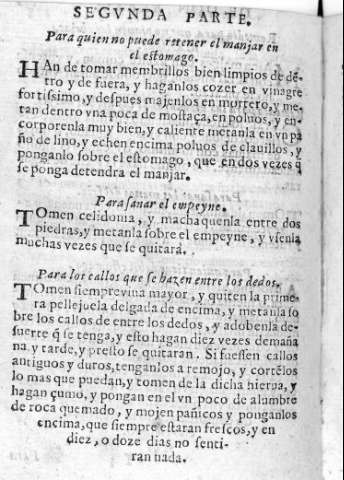 SEGVNDA PARTE.
Para quien no puede retener el manjar en
el estomago.
HAn de tomar membrillos bien limpios de dẽ-
tro y de fuera, y haganlos cozer en vinagre
fortissimo, y despues majenlos en mortero, y me-
tan dentro vna poca de mostaça, en poluos, y en-
corporenla muy bien, y caliente metanla en vn pa
ño de lino, y echen encima poluos de clauillos, y
ponganlo sobre el estomago, que en dos vezes q̃
se ponga detendra el manjar.
Para sanar el empeyne.
TOmen celidonia, y machaquenla entre dos
piedras, y metanla sobre el empeyne, y vsenla
muchas vezes que se quitarà.
Para los callos que se hazen entre los dedos.
TOmen siempreviua mayor, y quiten la prime-
ra pellejuela delgada de encima, y metanla so
bre los callos de entre los dedos, y adobenla de
suerte q̃ se tenga, y esto hagan diez vezes demaña
na y tarde, y presto se quitaran. Si fuessen callos
antiguos y duros, tenganlos a remojo, y cortẽlos
lo mas que puedan, y tomen de la dicha hierua, y
hagan çumo, y pongan en el vn poco de alumbre
de roca quemado, y mojen pañicos y ponganlos
encima, que siempre estaran frescos, y en
diez, o doze dias no senti-
ran nada.